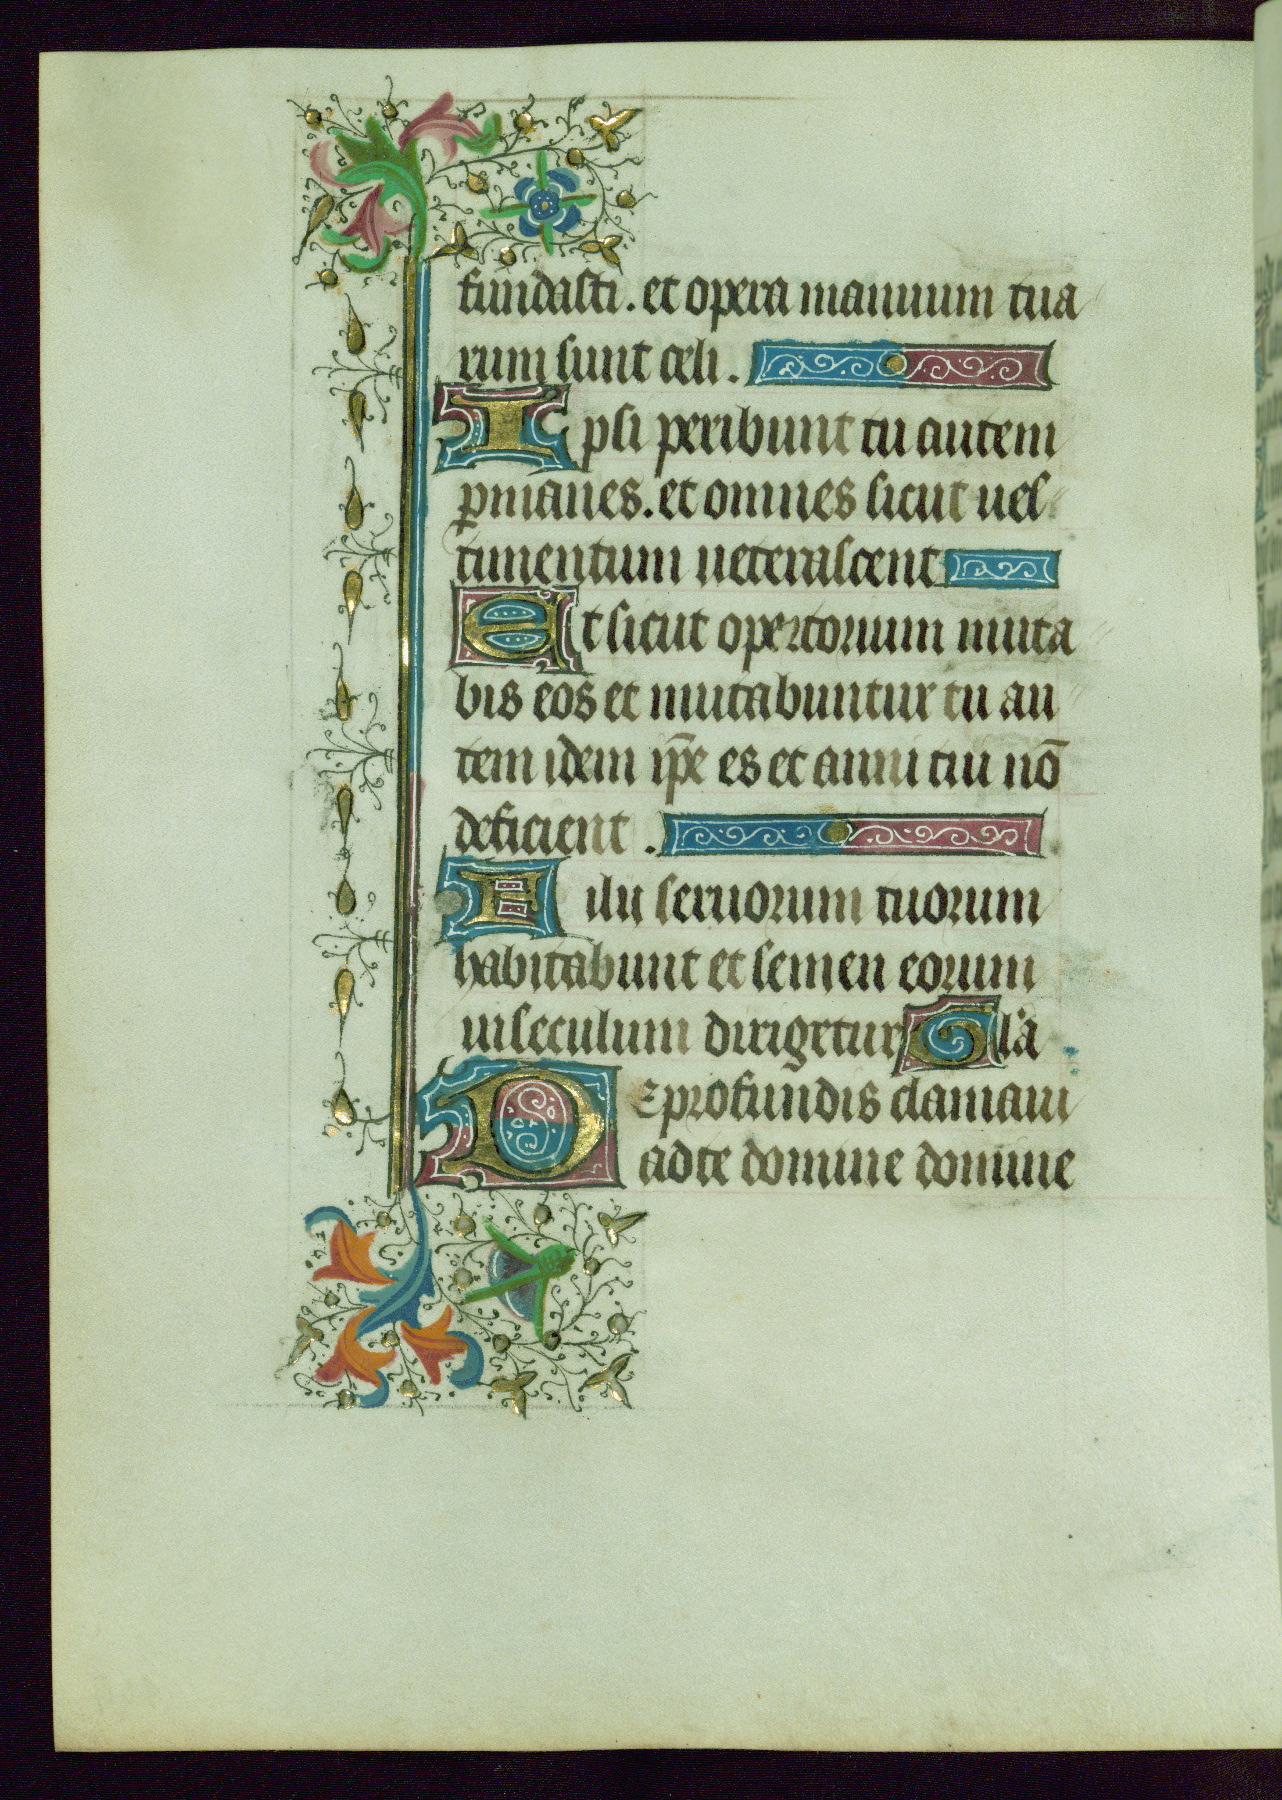 fundasti. et opera manuum tua
rum sunt celi.
Ipsi peribunt tu autem
p̲manes. et omnes sicut ues
timentum ueterascent
Et sicut opertorium muta
bis eos et mutabuntur tu au
tem idem ip̅e es et anni tui no̅
deficient.
Filii seruorum tuorum
habitabunt et semen eorum
in seculum dirigetur Gl'a
De profundis clamaui
ad te domine domine